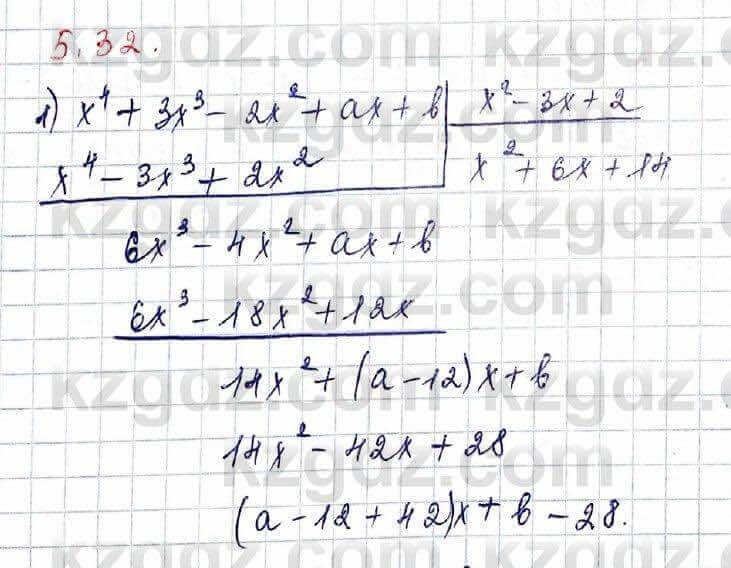 5.32.
1) x⁴ + 3x³ - 2x² + ax + b | x² - 3x + 2
x⁴ - 3x³ + 2x² | x² + 6x + 14
6x³ - 4x² + ax + b
6x³ - 18x² + 12x
14x² + (a - 12)x + b
14x² - 42x + 28
(a - 12 + 42)x + b - 28.
kzgdz.com
kzgdz.com
kzgdz.com
kzgdz.com
kzgdz.com
kzgdz.com